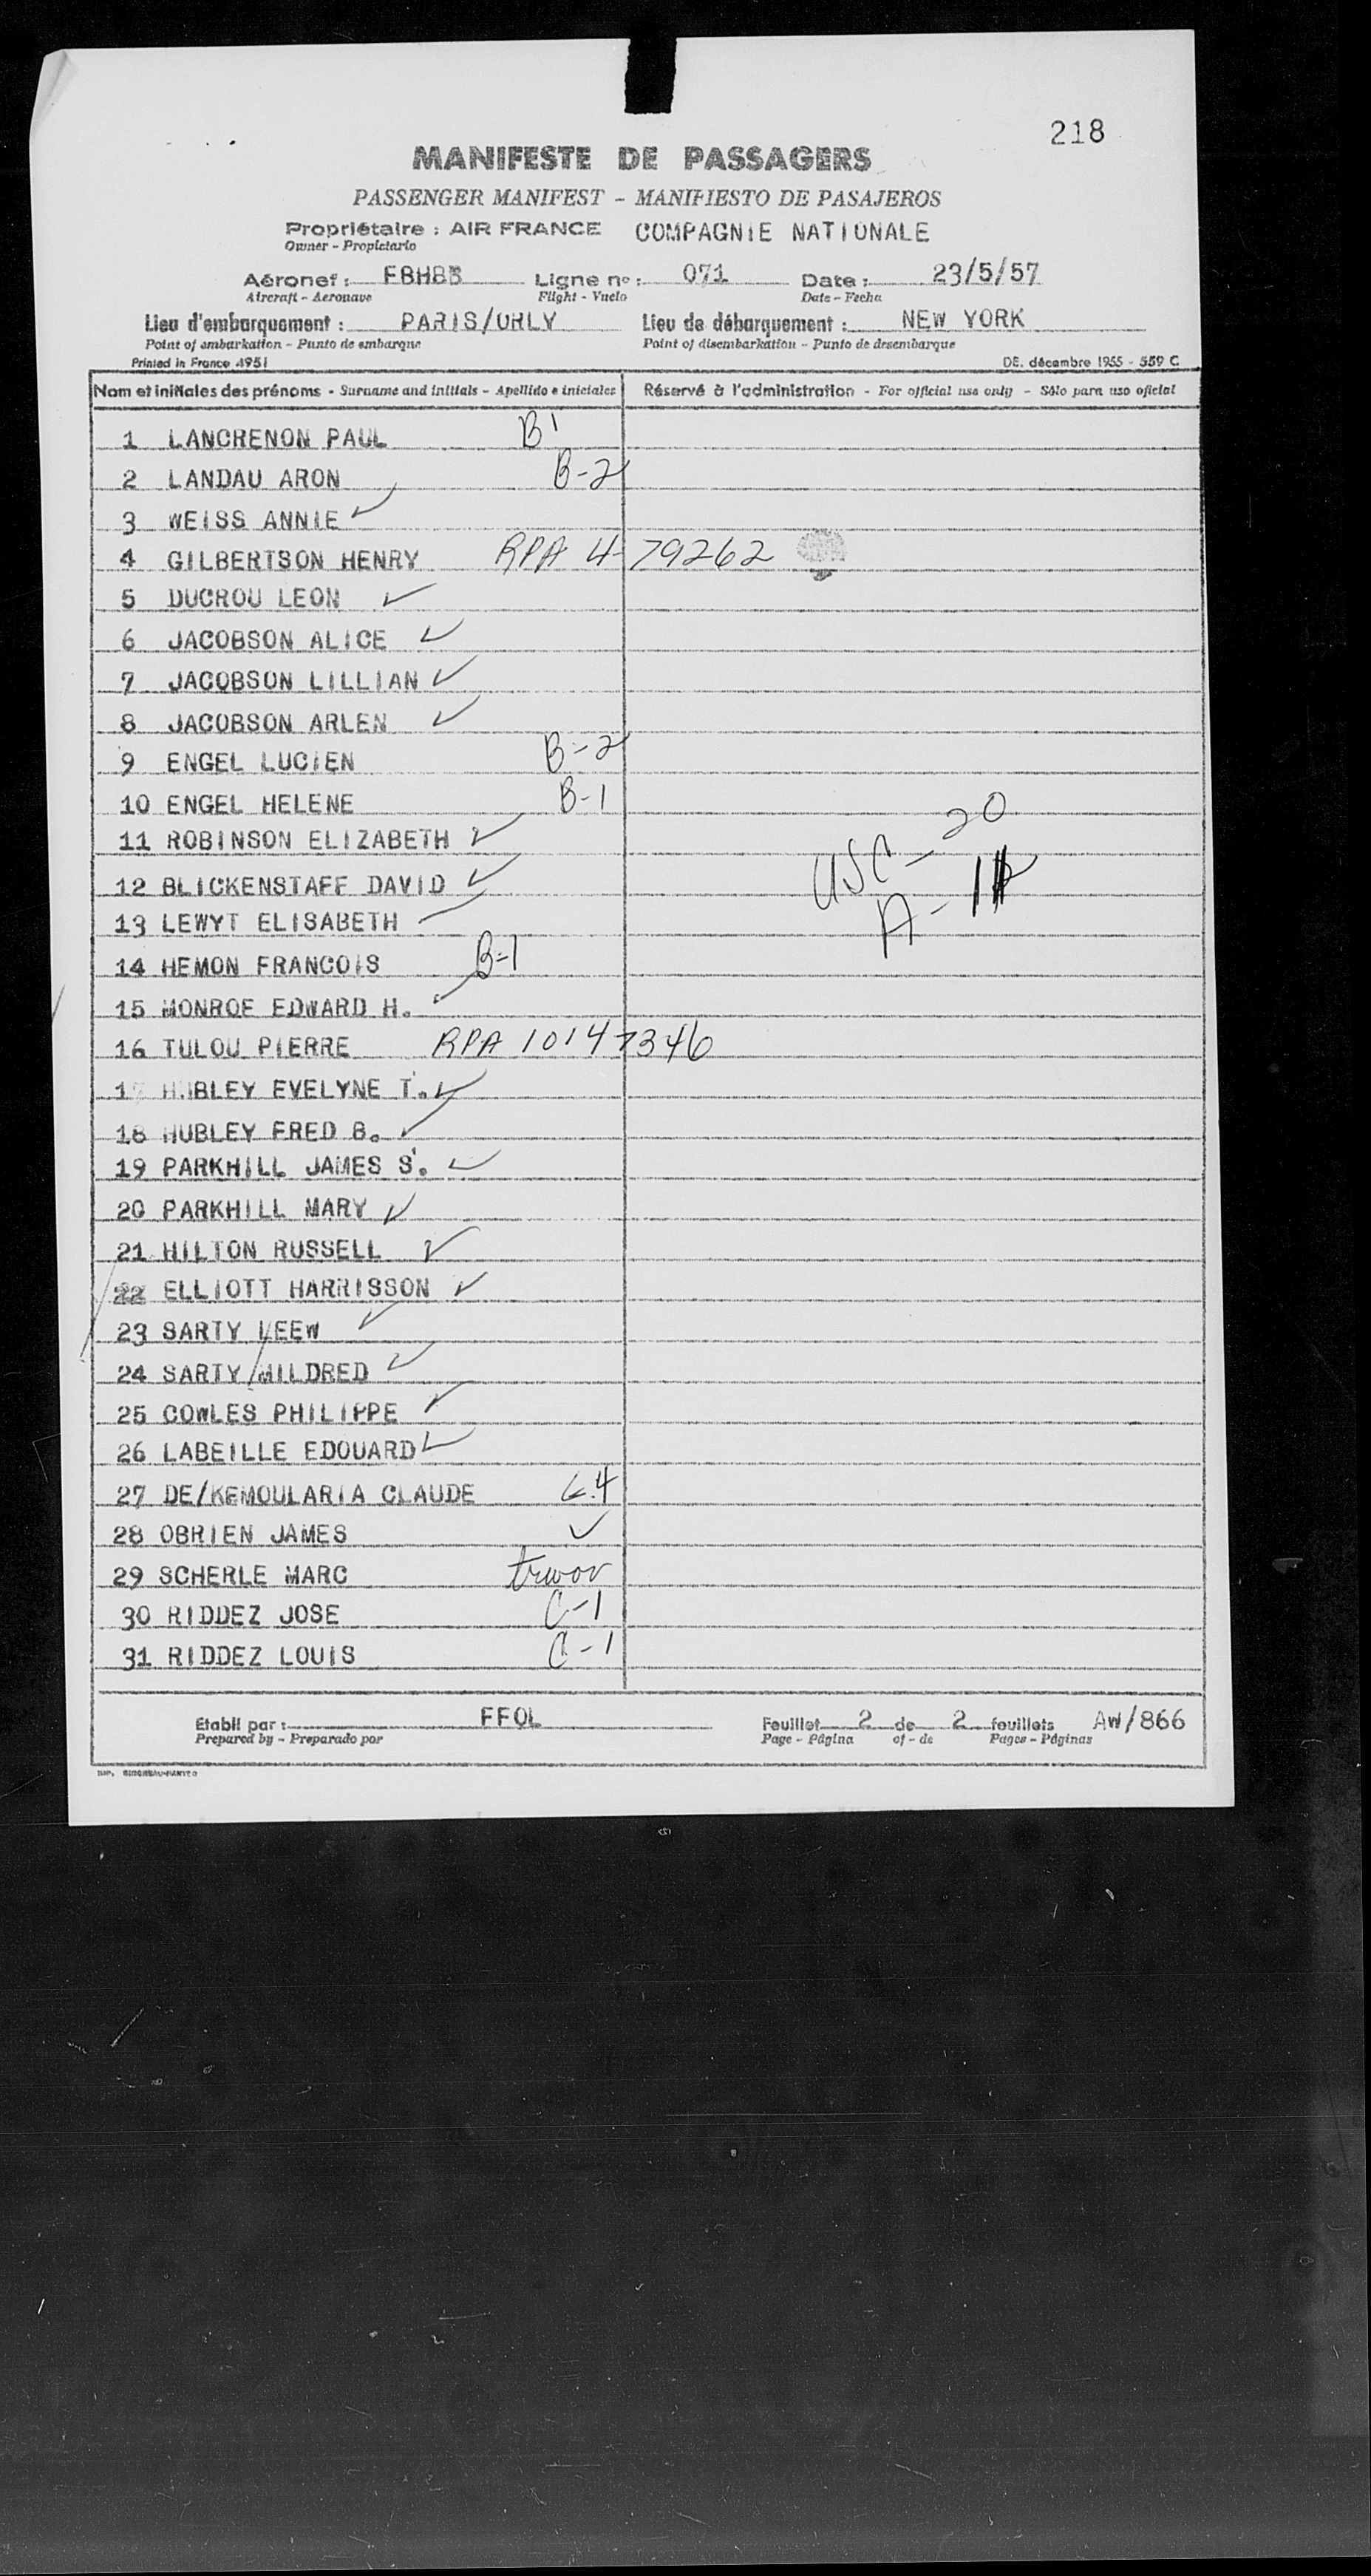 218
MANIFESTE DE PASSAGERS
PASSENGER MANIFEST – MANIFIESTO DE PASAJEROS
Propriétaire : AIR FRANCE COMPAGNIE NATIONALE
Owner – Propietario
Aéronef : FBHBB Ligne nº : 071 Date : 23/5/57
Aircraft – Aeronave Flight – Vuelo Date – Fecha
Lieu d'embarquement : PARIS/ORLY Lieu de débarquement : NEW YORK
Point of embarkation – Punto de embarque Point of disembarkation – Punto de desembarque
Printed in France 4951 DE. décembre 1955 - 559 C
Nom et initiales des prénoms - Surname and initials - Apellido e iniciales Réservé à l'administration - For official use only - Sólo para uso oficial
1 LANCRENON PAUL B1
2 LANDAU ARON B-2
3 WEISS ANNIE ✓
4 GILBERTSON HENRY RPA 4-79262
5 DUCROU LEON ✓
6 JACOBSON ALICE ✓
7 JACOBSON LILLIAN ✓
8 JACOBSON ARLEN ✓
9 ENGEL LUCIEN B-2
10 ENGEL HELENE B-1
11 ROBINSON ELIZABETH ✓
USC - 20
12 BLICKENSTAFF DAVID ✓
A - 11
13 LEWYT ELISABETH ✓
14 HEMON FRANCOIS B-1
15 MONROE EDWARD H. ✓
16 TULOU PIERRE RPA 10147346
17 HUBLEY EVELYNE T. ✓
18 HUBLEY FRED B. ✓
19 PARKHILL JAMES S. ✓
20 PARKHILL MARY ✓
21 HILTON RUSSELL ✓
22 ELLIOTT HARRISSON ✓
23 SARTY LEEW ✓
24 SARTY/MILDRED ✓
25 COWLES PHILIPPE ✓
26 LABEILLE EDOUARD ✓
27 DE/KEMOULARIA CLAUDE G.4
28 OBRIEN JAMES ✓
29 SCHERLE MARC trwov
30 RIDDEZ JOSE C-1
31 RIDDEZ LOUIS C-1
Etabli par : FFOL Feuillet 2 de 2 feuillets AW/866
Prepared by – Preparado por Page – Página of – de Pages – Páginas